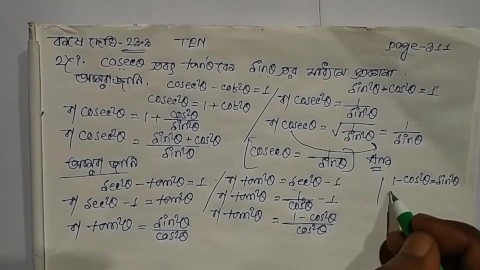 কষে দেখি-23.3 TEN page-311
2)(?. cosecθ এবং tanθ কে sinθ এর মাধ্যমে প্রকাশ
আমরা জানি, cosec²θ - cot²θ = 1
cosec²θ = 1 + cot²θ
বা cosec²θ = 1 + cos²θ/sin²θ
বা cosec²θ = sin²θ + cos²θ/sin²θ
sin²θ + cos²θ = 1
বা cosec²θ = 1/sin²θ
বা cosecθ = √1/sin²θ = 1/sinθ
cosecθ = 1/sinθ Ans
আমরা জানি
sec²θ - tan²θ = 1
বা sec²θ - 1 = tan²θ
বা tan²θ = sin²θ/cos²θ
বা tan²θ = sec²θ - 1
বা tan²θ = 1/cos²θ - 1
বা tan²θ = 1 - cos²θ/cos²θ
1 - cos²θ = sin²θ